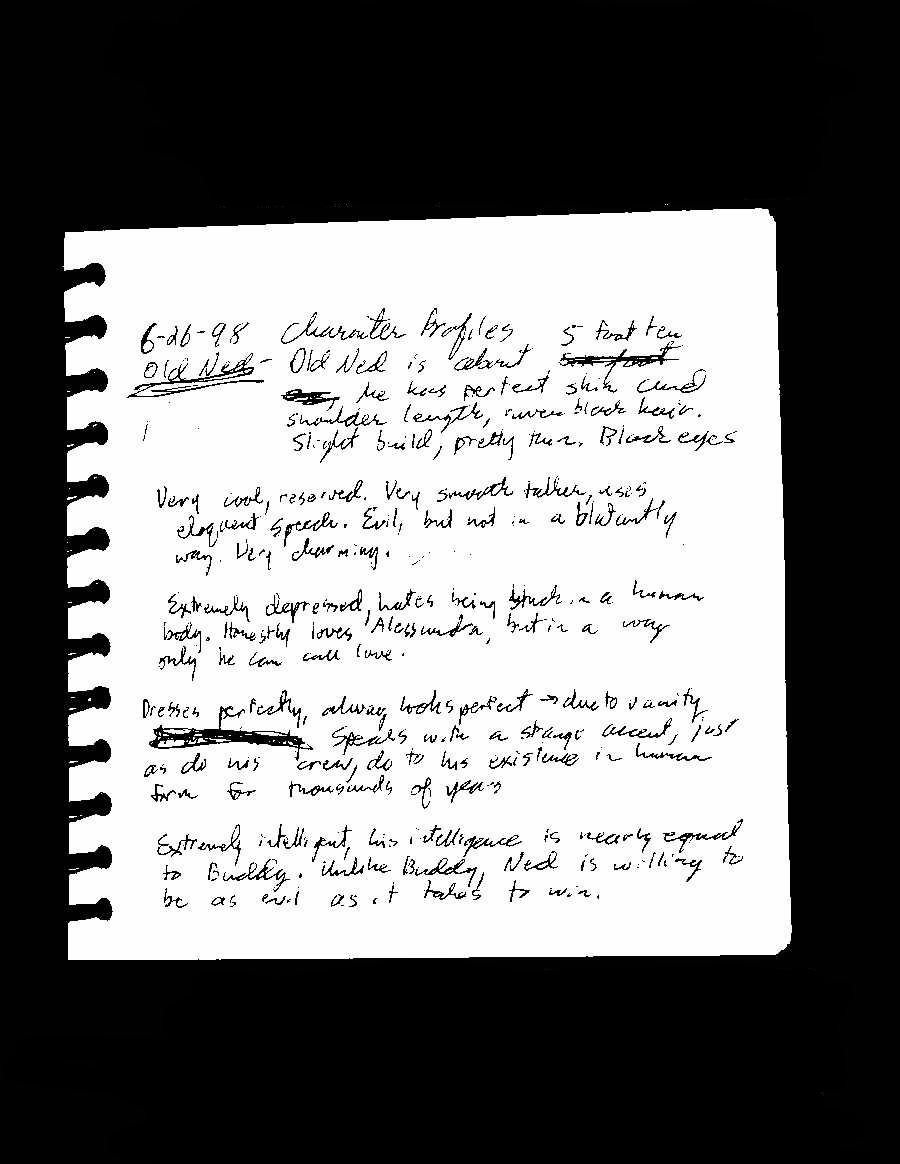 6-26-98 Character Profiles 5 foot ten
Old Ned - Old Ned is about six foot
He has perfect skin and
shoulder length, raven black hair.
Slight build, pretty thin. Black eyes
Very cool, reserved. Very smooth talker, uses
eloquent speech. Evil, but not in a blatantly
way. Very charming.
Extremely depressed, hates being stuck in a human
body. Honestly loves Alessandra, but in a way
only he can call love.
Dresses perfectly, always looks perfect → due to vanity
Speaks with a strange accent, just
as do his crew, do to his existence in human
form for thousands of years
Extremely intelligent, his intelligence is nearly equal
to Buddy. Unlike Buddy, Ned is willing to
be as evil as it takes to win.